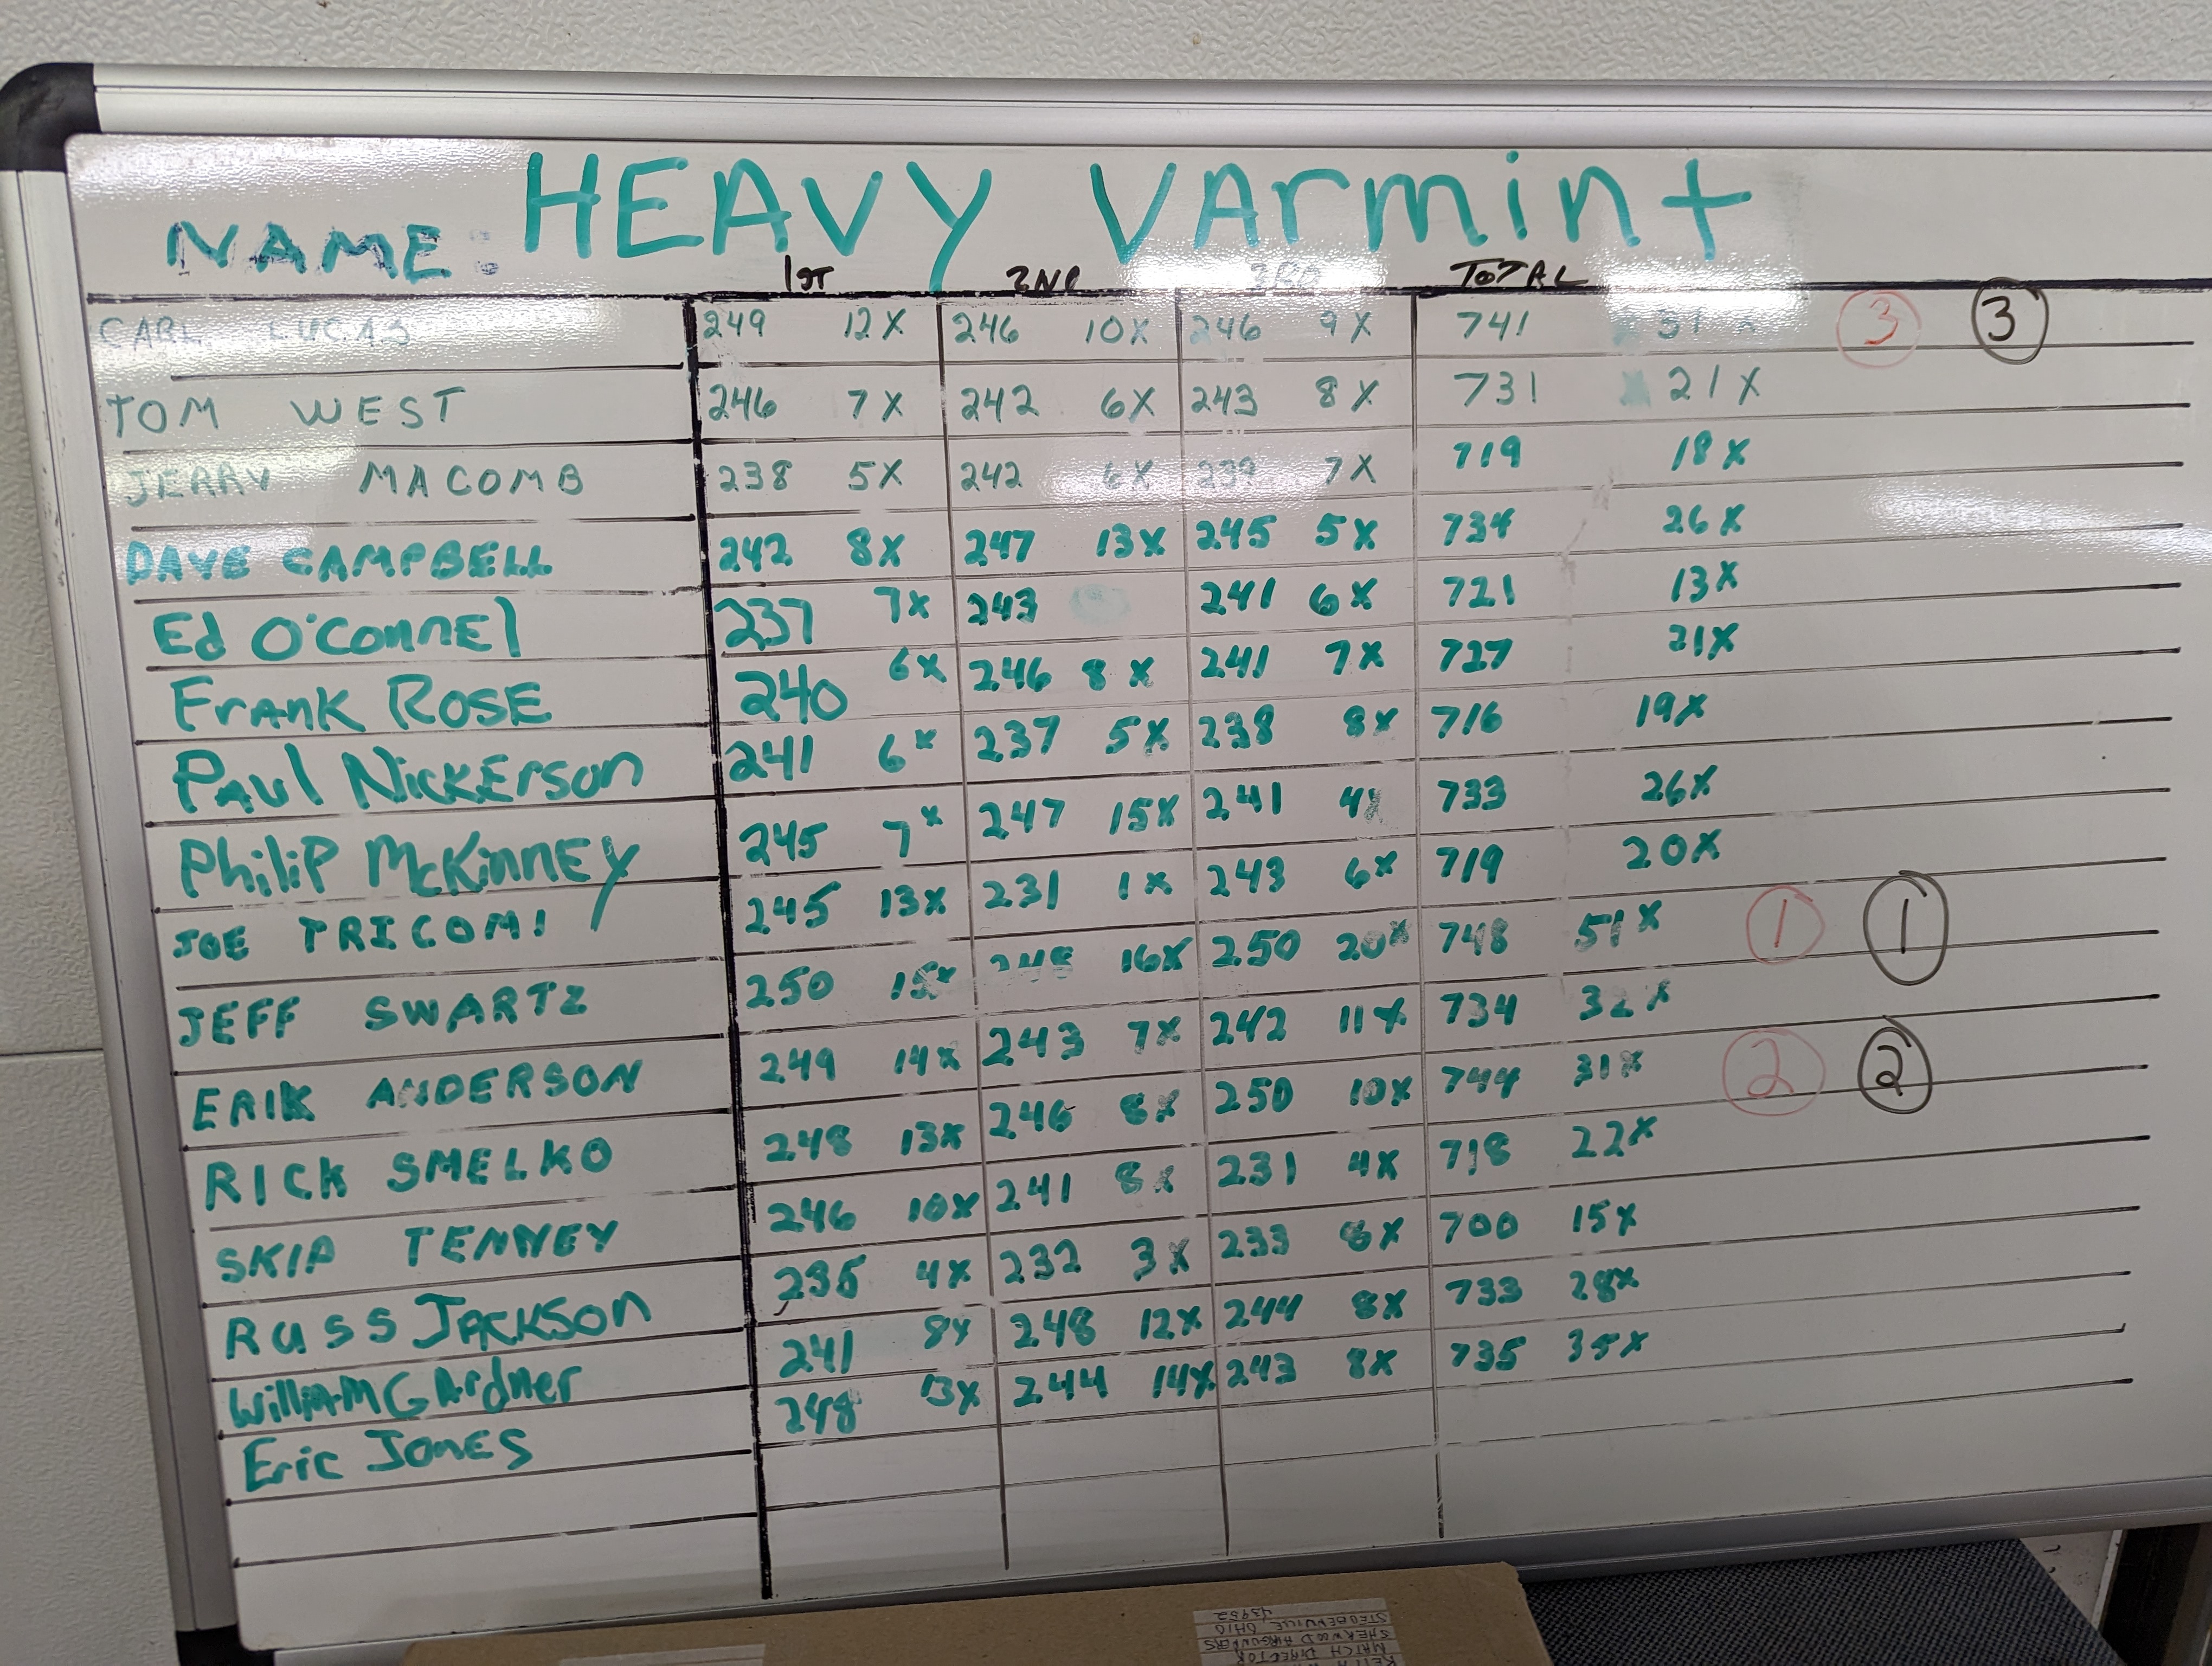 HEAVY Varmint
NAME:
1ST 2ND 3RD TOTAL
CARL LUCAS 249 12X 246 10X 246 9X 741 31X 3 3
TOM WEST 246 7X 242 6X 243 8X 731 21X
JERRY MACOMB 238 5X 242 6X 239 7X 719 18X
DAVE CAMPBELL 242 8X 247 13X 245 5X 734 26X
Ed O'ConnEl 237 7X 243 241 6X 721 13X
FrAnK ROSE 240 6X 246 8X 241 7X 727 21X
PAul NickErson 241 6X 237 5X 238 8X 716 19X
PhiliP McKinnEy 245 7X 247 15X 241 4X 733 26X
JOE TRICOMI 245 13X 231 1X 243 6X 719 20X
JEFF SWARTZ 250 15X 248 16X 250 20X 748 51X 1 1
ERIK ANDERSON 249 14X 243 7X 242 11X 734 32X
RICK SMELKO 248 13X 246 8X 250 10X 744 31X 2 2
SKIP TENNEY 246 10X 241 8X 231 4X 718 22X
RUSS JACKSON 235 4X 232 3X 233 8X 700 15X
WilliAM GArdner 241 8X 248 12X 244 8X 733 28X
Eric JonES 248 13X 244 14X 243 8X 735 35X
MATCH DIRECTOR
SHERWOOD AIRGUNNERS
STEUBENVILLE OHIO
43952